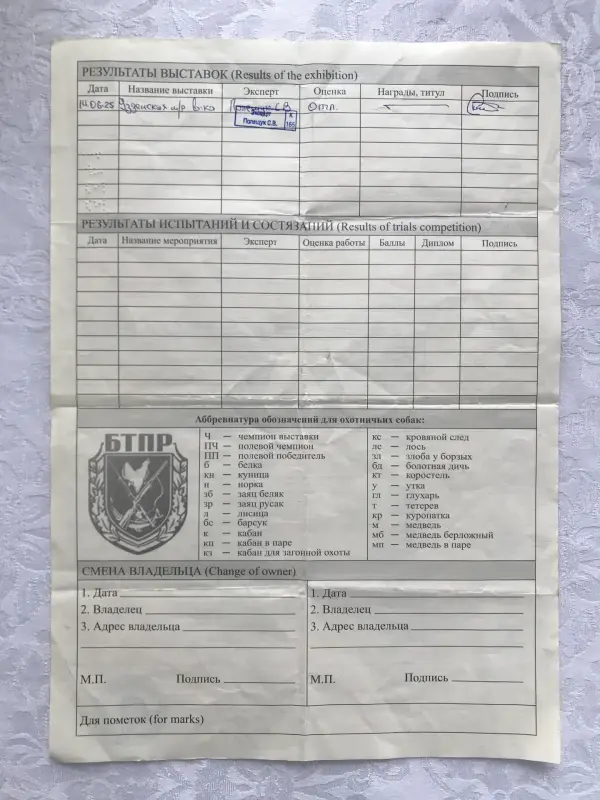 РЕЗУЛЬТАТЫ ВЫСТАВОК (Results of the exhibition)
Дата Название выставки Эксперт Оценка Награды, титул Подпись
14.06.25 Узденская р/р в-ка Полещук С.В. Отл.
Эксперт К
Полещук С.В. 165
РЕЗУЛЬТАТЫ ИСПЫТАНИЙ И СОСТЯЗАНИЙ (Results of trials competition)
Дата Название мероприятия Эксперт Оценка работы Баллы Диплом Подпись
Аббревиатура обозначений для охотничьих собак:
БТПР
Ч — чемпион выставки
ПЧ — полевой чемпион
ПП — полевой победитель
б — белка
кн — куница
н — норка
зб — заяц беляк
зр — заяц русак
л — лисица
бс — барсук
к — кабан
кп — кабан в паре
кз — кабан для загонной охоты
кс — кровяной след
лс — лось
зл — злоба у борзых
бд — болотная дичь
кт — коростель
у — утка
гл — глухарь
т — тетерев
кр — куропатка
м — медведь
мб — медведь берложный
мп — медведь в паре
СМЕНА ВЛАДЕЛЬЦА (Change of owner)
1. Дата
2. Владелец
3. Адрес владельца
М.П. Подпись
1. Дата
2. Владелец
3. Адрес владельца
М.П. Подпись
Для пометок (for marks)